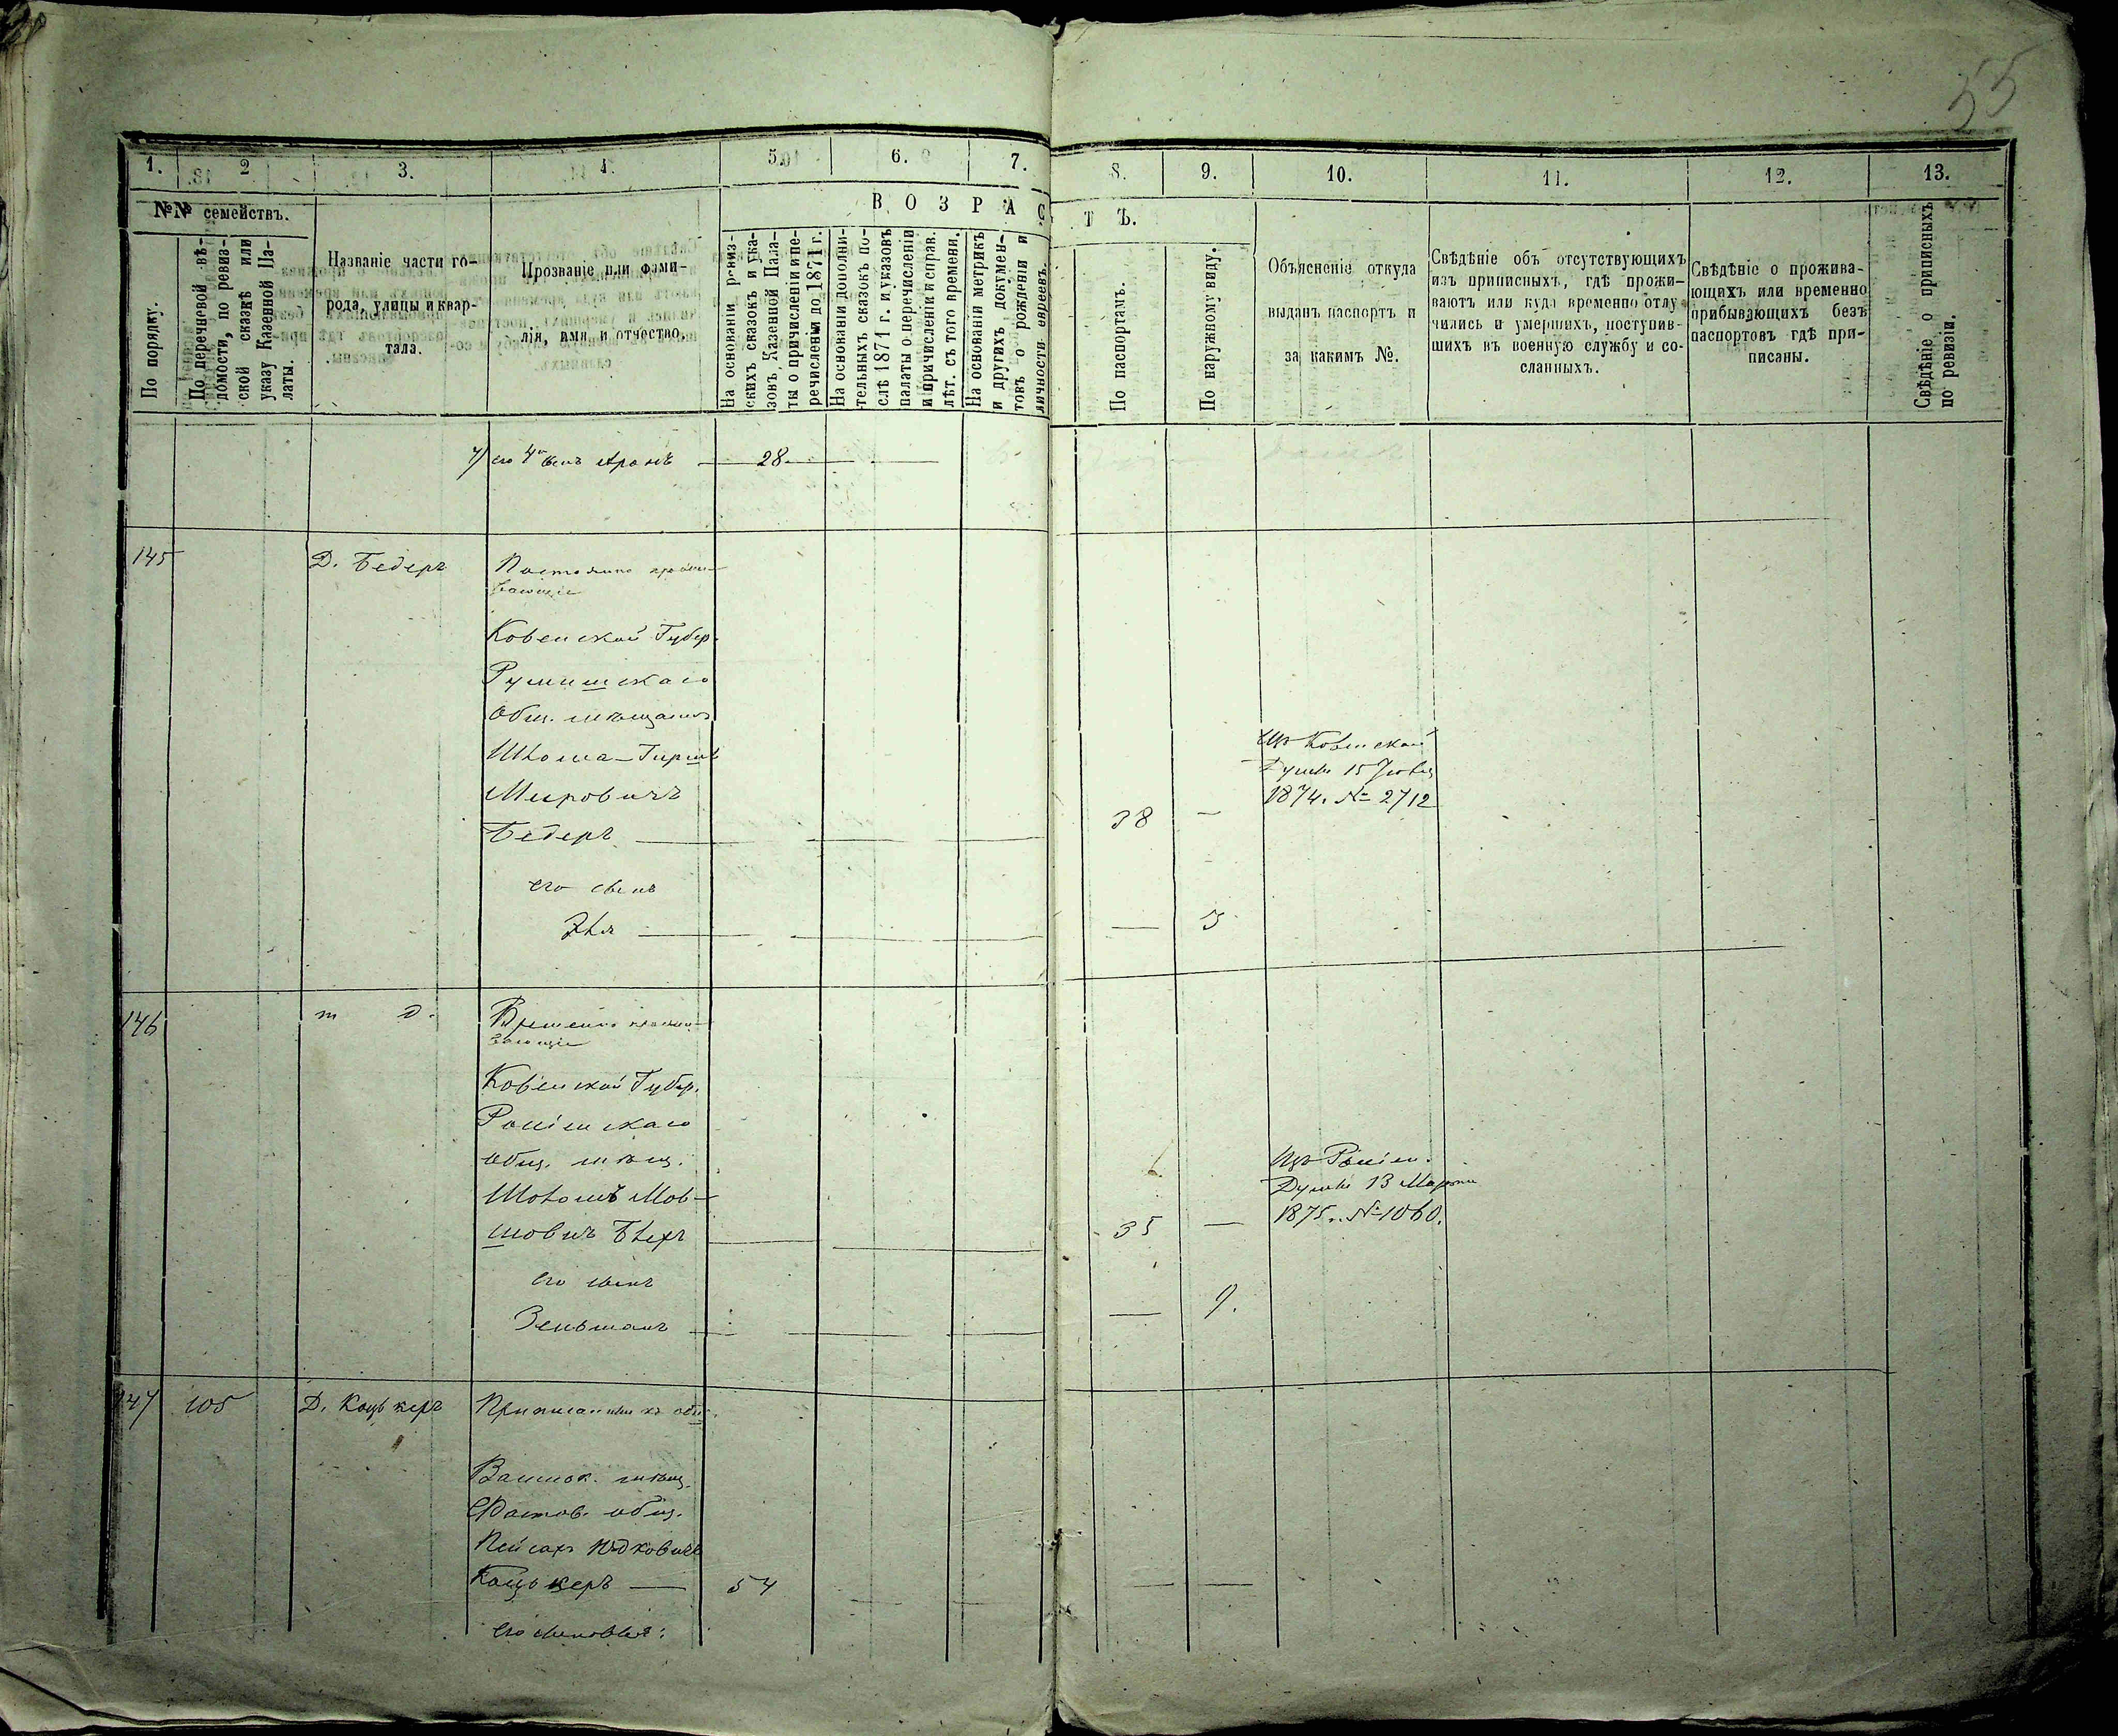 55
1. 2 3. 4. 5. 6. 7. 8. 9. 10. 11. 12. 13.
№№ семействъ.
По порядку.
По перечневой вѣ-
домости, по ревиз-
ской сказкѣ или
указу Казенной Па-
латы.
Названіе части го-
рода, улицы и квар-
тала.
Прозваніе или фами-
лія, имя и отчество.
ВОЗРАСТЪ.
На основаніи ревиз-
скихъ сказокъ и ука-
зовъ Казенной Пала-
ты о причисленіи и пе-
речисленіи до 1871 г.
На основаніи дополни-
тельныхъ сказокъ по-
слѣ 1871 г. и указовъ
палаты о перечисленіи
и причисленіи и справ.
лѣт. съ того времени.
На основаніи метрикъ
и другихъ докумен-
товъ о рожденіи и
личности евреевъ.
По паспортамъ.
По наружному виду.
Объясненіе откуда
выданъ паспортъ и
за какимъ №.
Свѣдѣніе объ отсутствующихъ
изъ приписныхъ, гдѣ прожи-
ваютъ или куда временно отлу-
чились и умершихъ, поступив-
шихъ въ военную службу и со-
сланныхъ.
Свѣдѣніе о прожива-
ющихъ или временно
прибывающихъ безъ
паспортовъ гдѣ при-
писаны.
Свѣдѣніе о приписныхъ
по ревизіи.
его 4й сынъ Аронъ — 28
145 Д. Бедеръ Постоянно прожи-
вающіе
Ковенской Губер.
Румшишскаго
Общ. мѣщанинъ
Шлома-Гиршъ
Мееровичъ
Бедеръ — 38 —
Изъ Ковенской
Думы 15
1874. № 2712
его сынъ
— 3
146 т д. Временно прожи-
вающіе
Ковенской Губер.
общ. мѣщ.
Шоломъ Мов-
шовичъ Блехъ 35 —
Думы 13 Марта
1875. № 1060.
его сынъ
9.
147 105 Д. Коцькеръ Приписанные къ общ.
мѣщ.
общ.
Пейсахъ Юдковичъ
Коцькеръ — 54 — —
его сыновья: